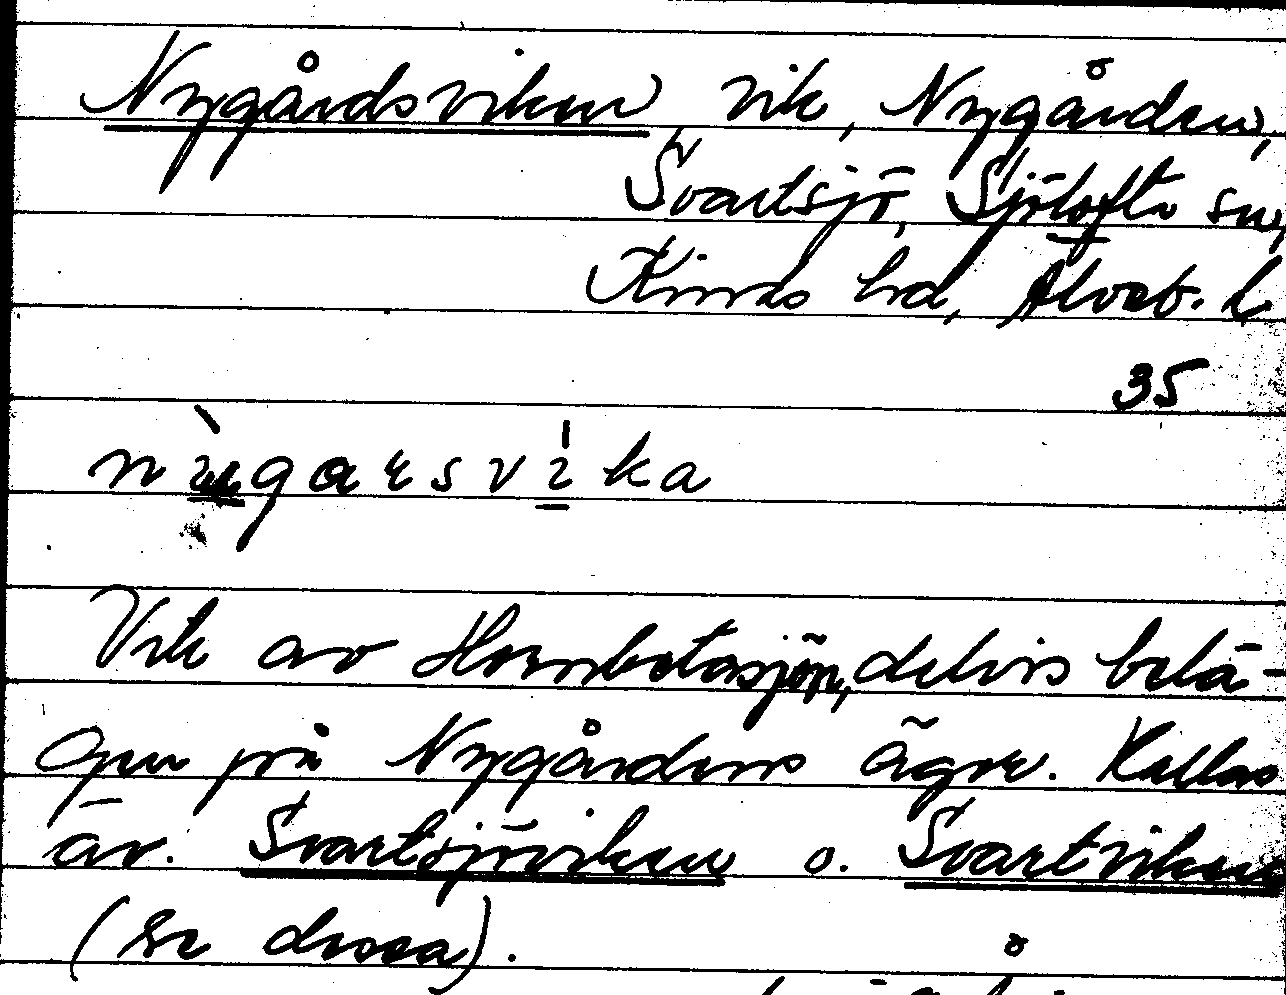 Nygårdsviken vik, Nygården,
Svartsjö, Sjötofta sn,
Kinds hd, Älvsb. l
35
Vik av Hornbotasjön, delvis belä-
gen på Nygårdens ägor. Kallas
äv. Svartsjöviken o. Svartviken
(se dessa).